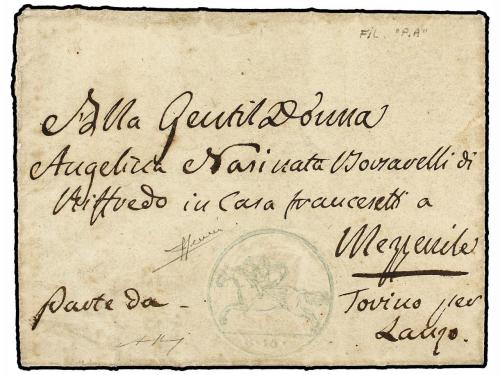 FIL. "P.A"
Alla Gentil Donna
Angelina Nasi nata Borsarelli di
Riffredo in Casa francesetti a
Mezzenile
Parte da
Torino per
Lanzo.